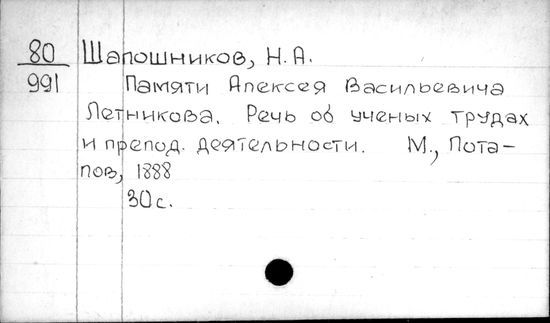 80 Шапошников, Н.А.
991 Памяти Алексея Васильевича
Летникова. Речь об ученых трудах
и препод. деятельности. М., Пота-
пов, 1888
30 с.